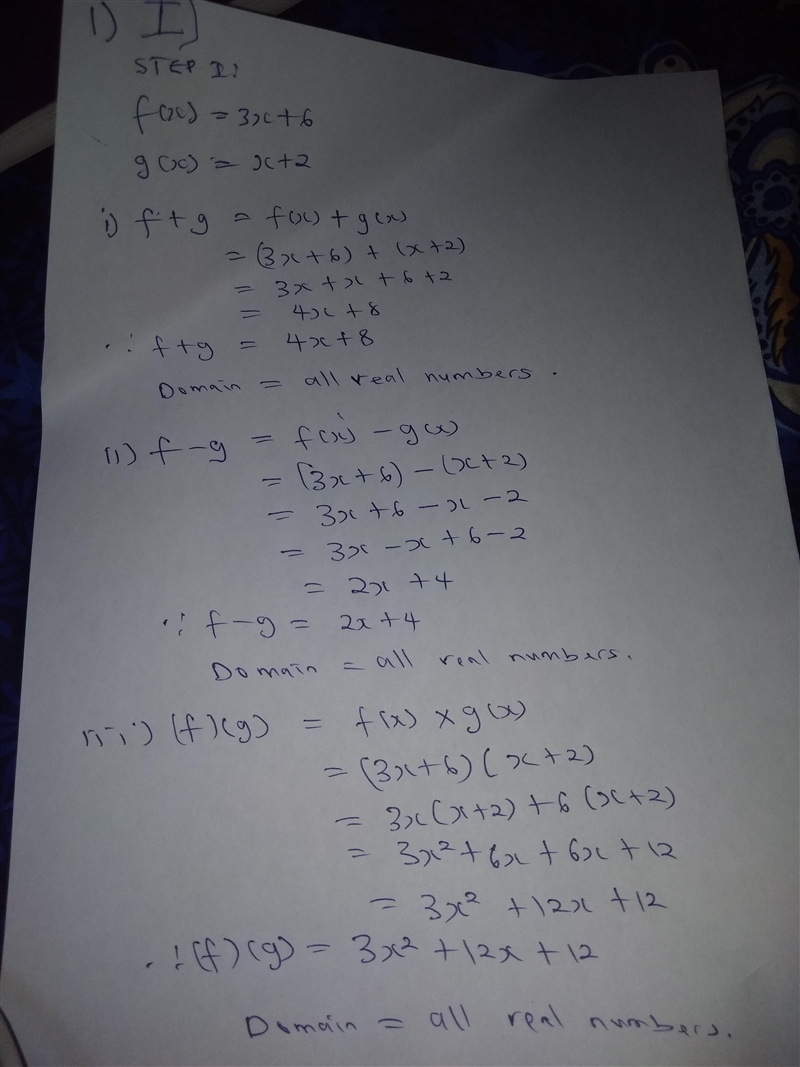 1) I)
STEP I:
f(x) = 3x+6
g(x) = x+2
i) f+g = f(x) + g(x)
= (3x+6) + (x+2)
= 3x + x + 6 + 2
= 4x + 8
∴ f+g = 4x+8
Domain = all real numbers.
ii) f-g = f(x) - g(x)
= (3x+6) - (x+2)
= 3x + 6 - x - 2
= 3x - x + 6 - 2
= 2x + 4
∴ f-g = 2x+4
Domain = all real numbers.
iii) (f)(g) = f(x) × g(x)
= (3x+6)(x+2)
= 3x(x+2) + 6(x+2)
= 3x² + 6x + 6x + 12
= 3x² + 12x + 12
∴ (f)(g) = 3x² + 12x + 12
Domain = all real numbers.